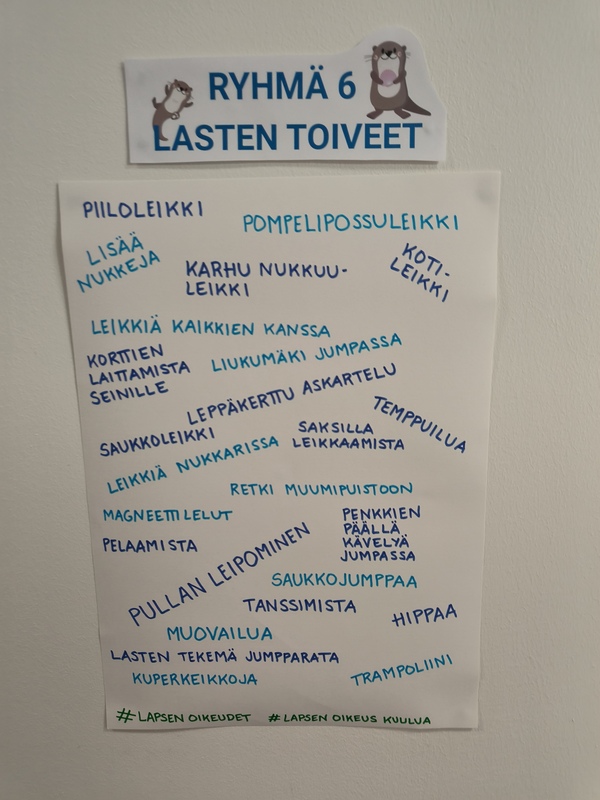 RYHMÄ 6
LASTEN TOIVEET
PIILOLEIKKI
POMPELIPOSSULEIKKI
LISÄÄ
NUKKEJA
KARHU NUKKUU-
LEIKKI
KOTI-
LEIKKI
LEIKKIÄ KAIKKIEN KANSSA
KORTTIEN
LAITTAMISTA
SEINILLE
LIUKUMÄKI JUMPASSA
LEPPÄKERTTU ASKARTELU
TEMPPUILUA
SAUKKOLEIKKI
SAKSILLA
LEIKKAAMISTA
LEIKKIÄ NUKKARISSA
RETKI MUUMIPUISTOON
MAGNEETTILELUT
PENKKIEN
PÄÄLLÄ
KÄVELYÄ
JUMPASSA
PELAAMISTA
PULLAN LEIPOMINEN
SAUKKOJUMPPAA
TANSSIMISTA
HIPPAA
MUOVAILUA
LASTEN TEKEMÄ JUMPPARATA
KUPERKEIKKOJA
TRAMPOLIINI
#LAPSEN OIKEUDET #LAPSEN OIKEUS KUULUA